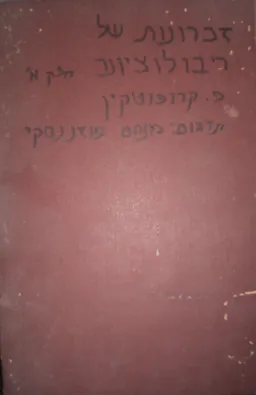 זכרונות של
ריבולוציונר חלק א'
פ. קרופוטקין
תרגום: מנחם פוזננסקי